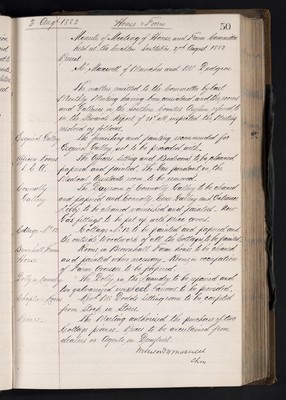 2 Augt 1882
House & Farm
50
Minute of Meeting of House and Farm Committee
held at the Crichton Institution, 2nd August 1882
Present
Mr Maxwell of and Mr Dudgeon
The matters remitted to the Committee by last
Monthly Meeting having been considered, and the rooms
and Galleries in the Southern Counties Asylum referred to
in the Stewards Report of all inspected the Meeting
resolved as follows.
The finishing and painting recommended for
Gallery not to be proceeded with.
Officers Rooms
The Officers Sitting and Bedrooms to be cleaned
papered and painted. The Gas pendant in the
Medical Assistants room to be renewed.
Connolly
Gallery
The Dayroom of Connolly Gallery to be cleaned
and papered and Connolly Gallery and Entrance
Lobby to be cleaned varnished and painted. New
Gas fittings to be put up with three
Cottage No
Cottage No to be painted and papered and
the outside woodwork of all the Cottages to be painted.
Brownhall Farm
House
Rooms in Brownhall Farm House to be cleaned
and painted when necessary. Rooms in occupation
of Farm to be papered
Dolly in Laundry
The Dolly in the Laundry to be repaired and
two galvanized barrows to be provided.
Room
Dodds Sitting room to be carpeted
from Stock in Store.
Pianos
The Meeting authorised the purchase of two
Cottage pianos. Prices to be ascertained from
dealers or Agents in Dumfries.
Chn